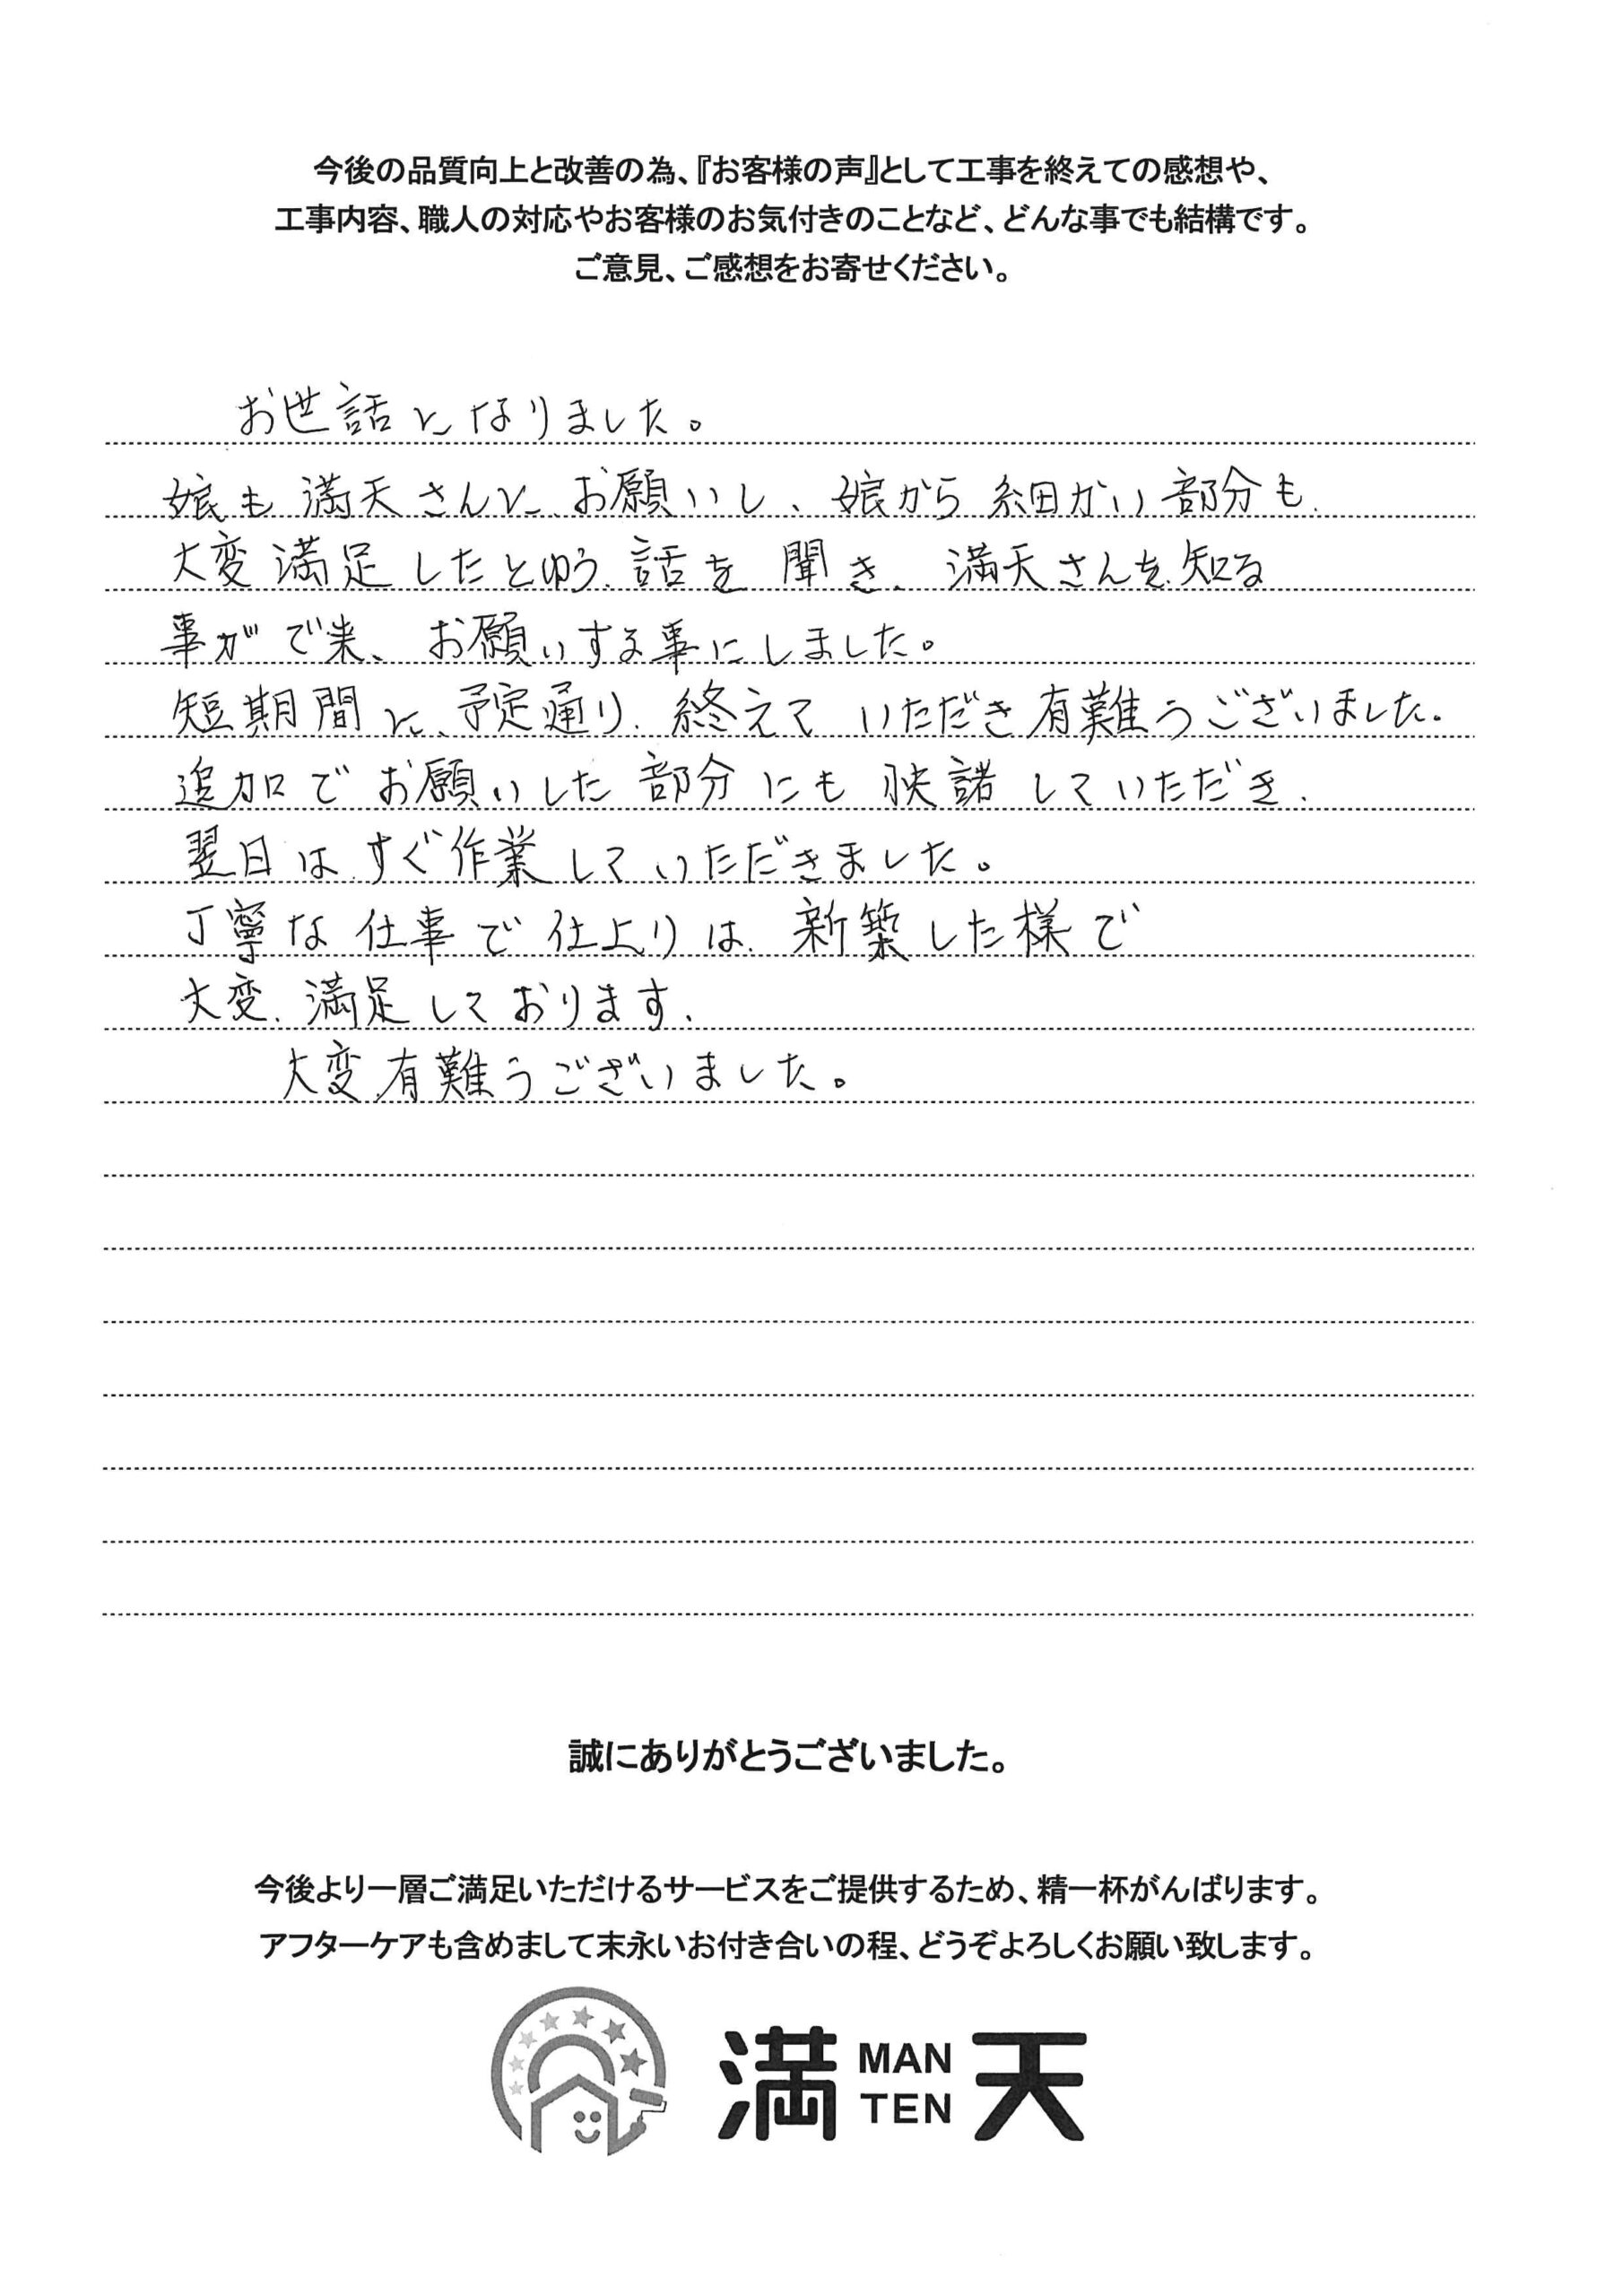 今後の品質向上と改善の為、『お客様の声』として工事を終えての感想や、
工事内容、職人の対応やお客様のお気付きのことなど、どんな事でも結構です。
ご意見、ご感想をお寄せください。
お世話になりました。
娘も満天さんに、お願いし、娘から細かい部分も
大変満足したとゆう話を聞き、満天さんを知る
事がで来、お願いする事にしました。
短期間に、予定通り、終えていただき有難うございました。
追加でお願いした部分にも快諾していただき、
翌日はすぐ作業していただきました。
丁寧な仕事で仕上りは、新築した様で
大変、満足しております。
大変有難うございました。
誠にありがとうございました。
今後より一層ご満足いただけるサービスをご提供するため、精一杯がんばります。
アフターケアも含めまして末永いお付き合いの程、どうぞよろしくお願い致します。
満 MAN TEN 天